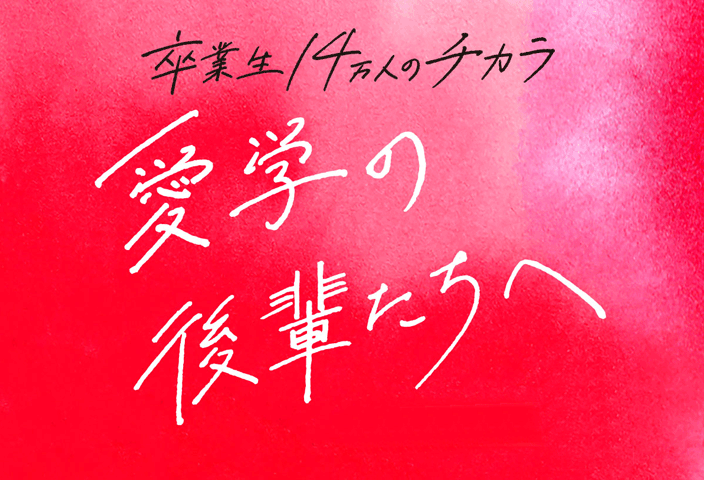 卒業生14万人のチカラ
愛学の
後輩たちへ